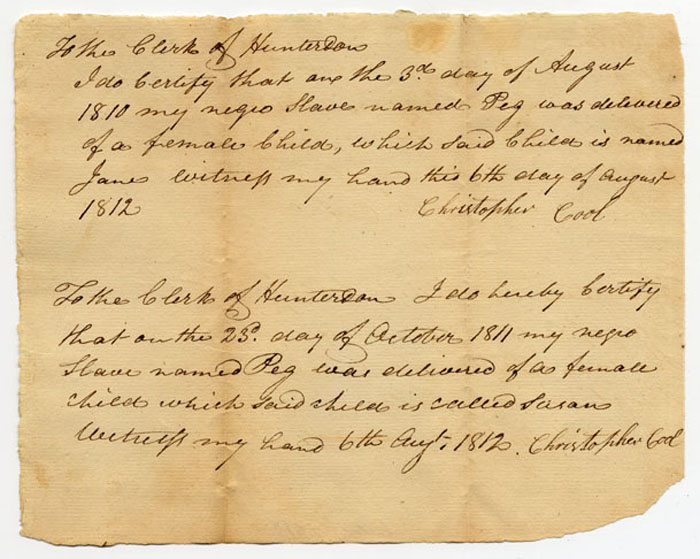 To the Clerk of Hunterdon
I do Certify that on the 3.d day of August
1810 my negro Slave named Peg was delivered
of a female Child, which said Child is named
Jane Witness my hand this 6th day of August
1812 Christopher Cool
To the Clerk of Hunterdon I do hereby Certify
that on the 23.d day of October 1811 my negro
Slave named Peg was delivered of a female
child which said child is called Susan
Witness my hand 6th Augt. 1812. Christopher Cool